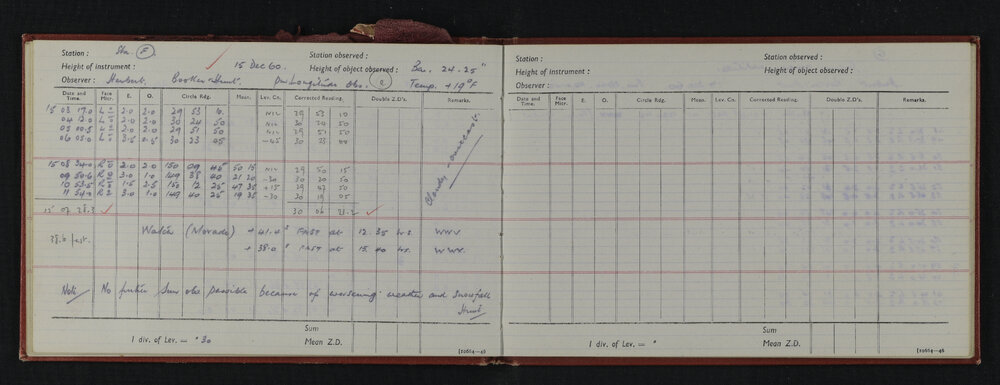 Station : Stn. F
Station observed :
Height of instrument :
15 Dec 60.
Height of object observed : Bar. 24.25"
Observer : Herbert. Booker + Hunt. Sun Longitude Obs. Temp. +19°F
Date and Time. Face Micr. E. O. Circle Rdg. Mean. Lev. Cn. Corrected Reading. Double Z.D's. Remarks.
15 03 17.0 L 2.0 2.0 29 53 NIL 29 53 10
04 12.0 L 2.0 2.0 30 24 50 NIL 30 24 50
05 00.5 L 2.0 2.0 29 51 50 NIL 29 51 50
06 05.0 L 3.5 0.5 30 23 05 -45 30 23
15 08 34.0 R 2.0 2.0 150 09 45 50 15 NIL 29 50 15
09 50.6 R 3.0 1.0 149 38 40 21 20 -30 30 20 50
10 53.5 R 1.5 2.5 150 12 25 47 35 +15 29 47 50
11 54.0 R 3.0 1.0 149 40 25 19 35 -30 30 19 05
15 07 28.3 30 06 21.2
Cloudy - overcast.
38.6 fast. Watch (Morado) + 41.0 s FAST at 12 35 hrs. WWV
+ 38.0 s FAST at 15 40 hrs. WWV.
Note No further Sun obs possible because of worsening weather and snowfall
Hunt
Sum
1 div. of Lev. = " 30 Mean Z.D.
[10664—46
Station :
Station observed :
Height of instrument :
Height of object observed :
Observer :
Date and Time. Face Micr. E. O. Circle Rdg. Mean. Lev. Cn. Corrected Reading. Double Z.D's. Remarks.
Sum
1 div. of Lev. = " Mean Z.D.
[10664—46